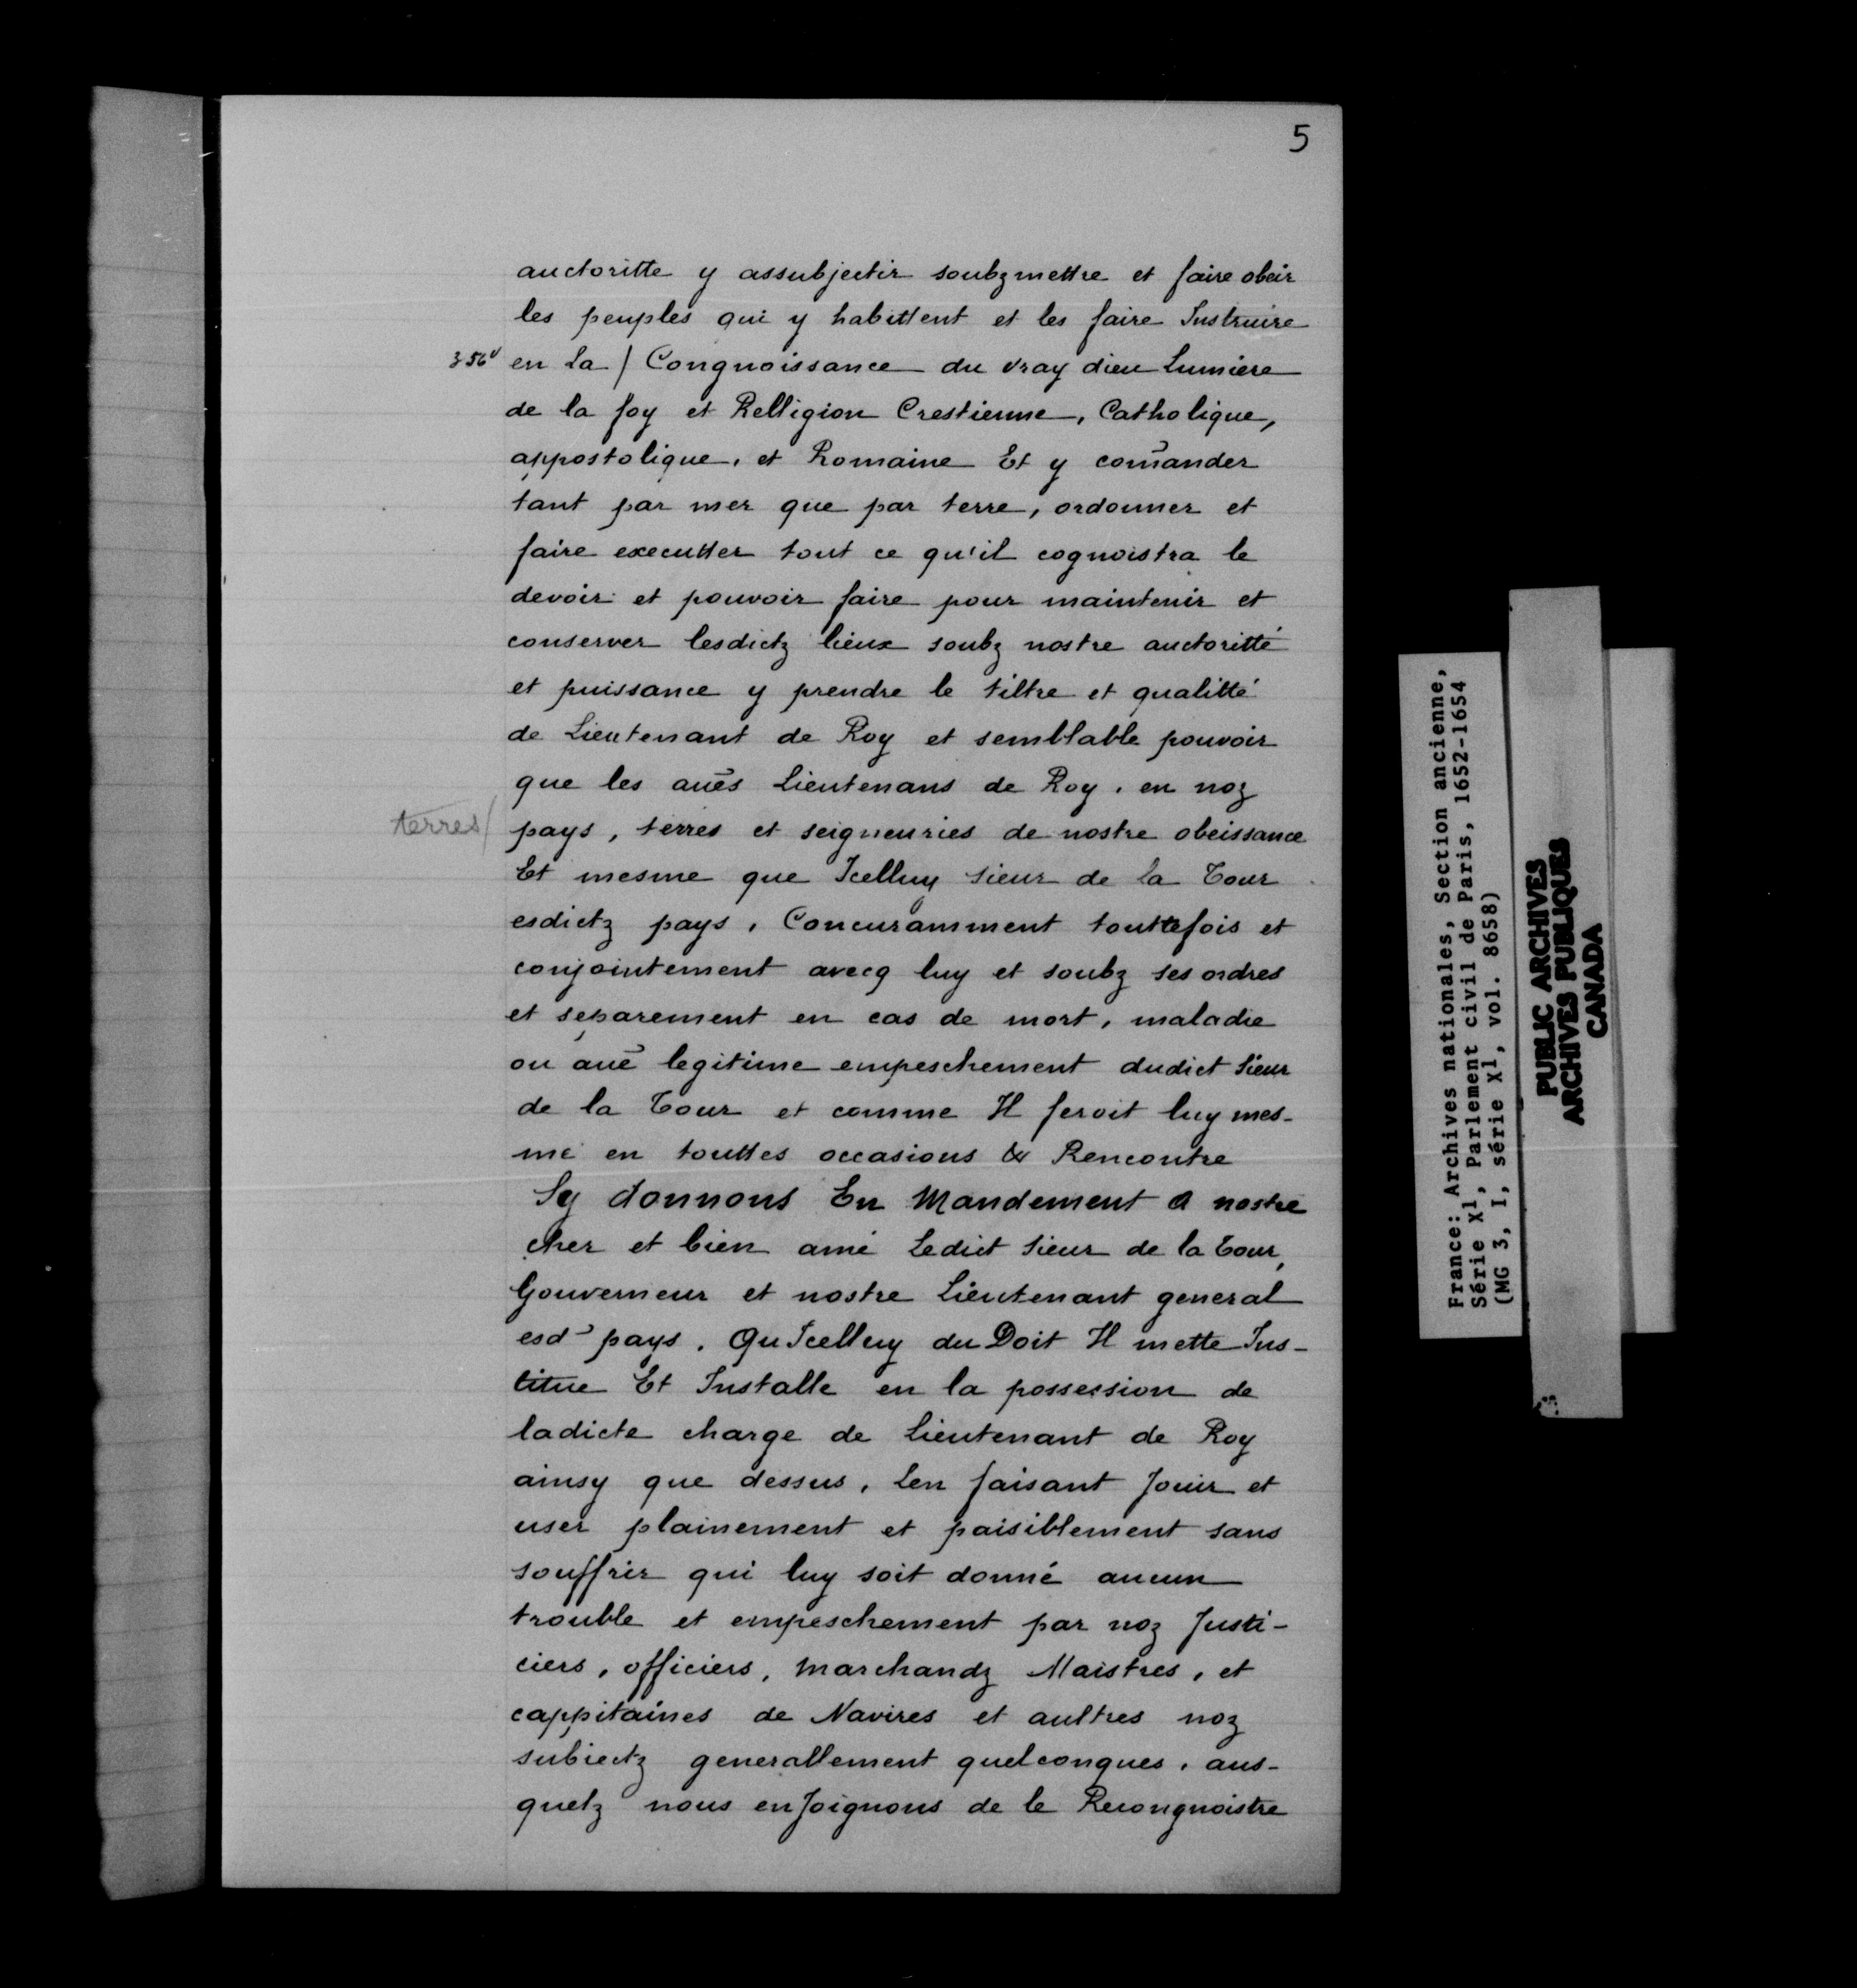 5
auctoritte y assubjectir soubzmettre et faire obeir
les peuples qui y habittent et les faire Instruire
356v en La / Congnoissance du vray dieu Lumiere
de la foy et Relligion Crestienne, Catholique,
appostolique, et Romaine Et y com̃ander
tant par mer que par terre, ordonner et
faire executter tout ce qu'il cognoistra le
devoir et pouvoir faire pour maintenir et
conserver lesdictz lieux soubz nostre auctoritté
et puissance y prendre le tiltre et qualitté
de Lieutenant de Roy et semblable pouvoir
que les aūes Lieutenans de Roy, en noz
terres/ pays, terres et seigneuries de nostre obeissance
Et mesme que Icelluy sieur de la Tour
esdictz pays, Concuramment touttefois et
conjointement avecq luy et soubz ses ordres
et separement en cas de mort, maladie
ou aūe legitime empeschement dudict sieur
de la Tour et comme Il feroit luy mes-
me en touttes occasions & Rencontre
Sy donnons En Mandement A nostre
cher et bien amé Ledict sieur de la Tour,
Gouverneur et nostre Lieutenant general
esd' pays. Qu Icelluy du Doit Il mette Ins-
titue Et Installe en la possession de
ladicte charge de Lieutenant de Roy
ainsy que dessus, Len faisant Jouir et
user plainement et paisiblement sans
souffrir qui luy soit donné aucun
trouble et empeschement par noz Justi-
ciers, officiers, Marchandz Maistres, et
cappitaines de Navires et aultres noz
subiectz generallement quelconques, aus-
quelz nous enJoignons de le Recongnoistre
France: Archives nationales, Section ancienne,
Série X1, Parlement civil de Paris, 1652-1654
(MG 3, I, série X1, vol. 8658)
PUBLIC ARCHIVES
ARCHIVES PUBLIQUES
CANADA